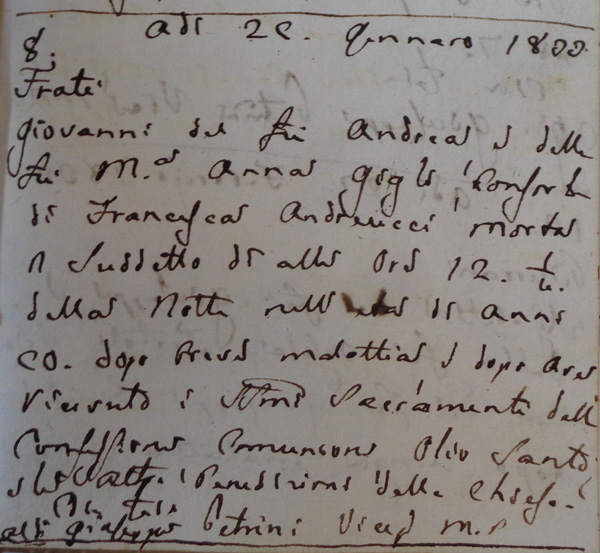 adi 26. Gennaro 1800
8.
Frati
Giovanni del fu Andrea e della
fu M.a Anna Gigli, Consorte
di Francesca Andreucci morto
il Suddetto di alle Ore 12.
della Notte nell età di Anni
60. dopo breve malattia e dopo aver
ricevuto i SSmi Sacramenti della
Confessione Comunione Olio Santo
e le altre Benedizioni della Chiesa.
Petrini